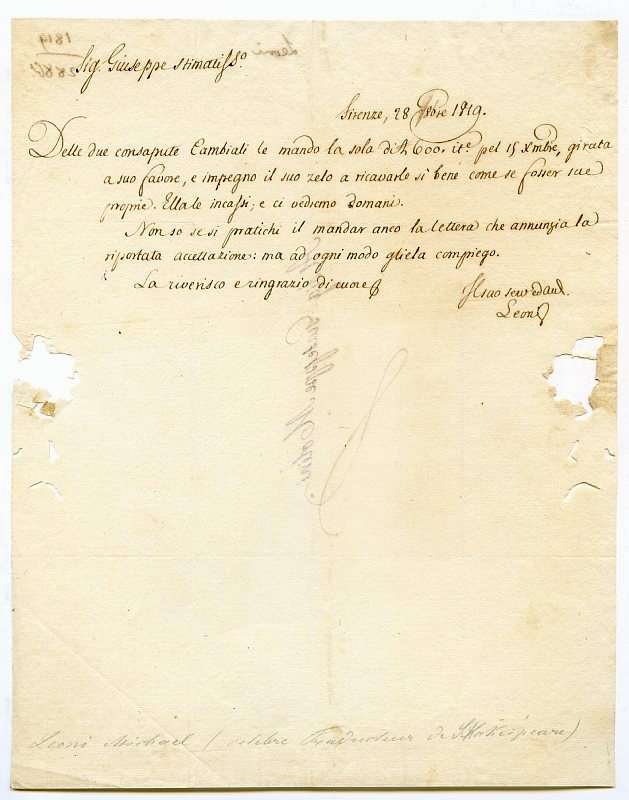 Sig. Giuseppe stimatiss.º
Firenze, 28 9bre 1819.
Delle due consapute Cambiali le mando la sola di 600. it.e pel 15 Xmbre, girata
a suo favore, e impegno il suo zelo a ricavarle sì bene come se fosser sue
proprie. Ella le incassi; e ci vedremo domani.
Non so se si pratichi il mandar anco la lettera che annunzia la
riportata accettazione: ma ad ogni modo gliela compiego.
La riverisco e ringrazio di cuore
Il suo serv ed am.
Leoni
Leoni
1819
Giuseppe Molini
Leoni Michael (celebre Traducteur de Shakespeare)